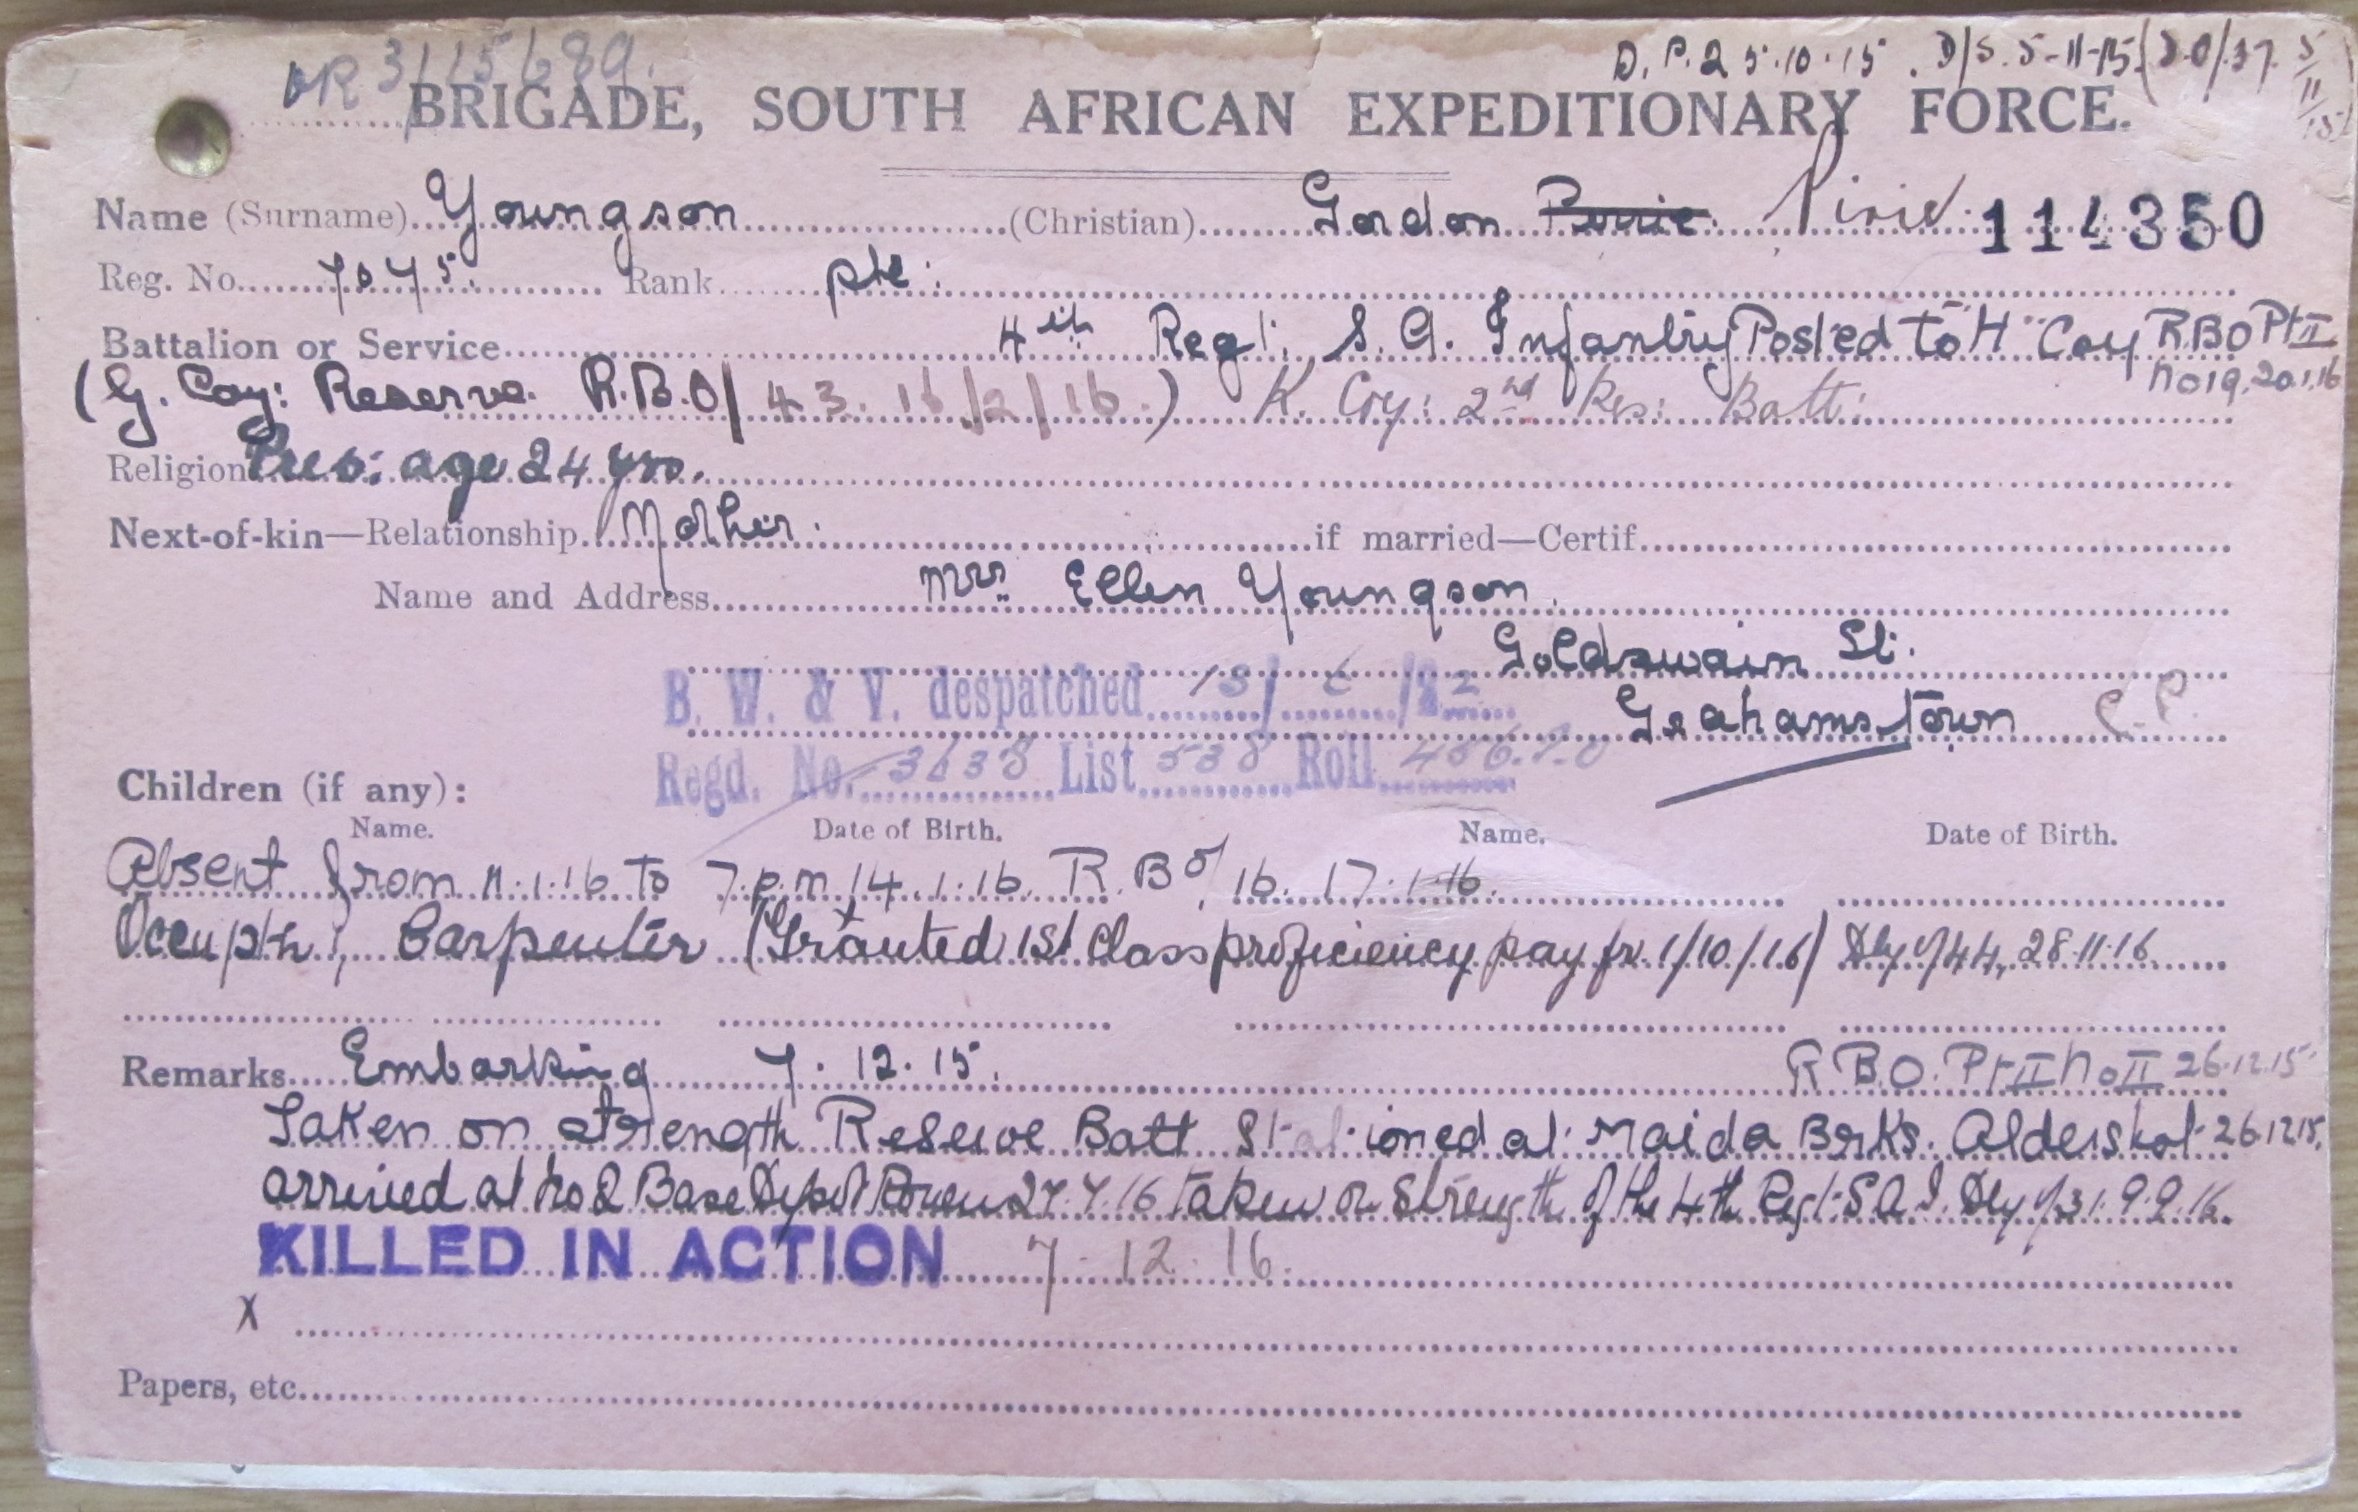 DR 3/15689. D.P.2 5.10.15. D/S. 5-11-15 (D.O/.37. 5/11/15)
BRIGADE, SOUTH AFRICAN EXPEDITIONARY FORCE.
Name (Surname) Youngson (Christian) Gordon Perrie. Pirie. 114350
Reg. No. 7075. Rank pte:
Battalion or Service 4th Regt. S. A. Infantry Posted to "H" Coy R.B.O Pt II
No 19. 20.1.16
(G. Coy: Reserve. R.B.O/ 43. 16/2/16.) K. Coy: 2nd Res: Batt:
Religion Pres: age 24 yrs.
Next-of-kin—Relationship Mother. if married—Certif.
Name and Address Mrs. Ellen Youngson.
Goldswain St.
B. W. & V. despatched 13/ 6 /22
Grahamstown C.P.
Regd. No. 3638 List 538 Roll 486.
Children (if any):
Name. Date of Birth. Name. Date of Birth.
Absent from 11.1.16 to 7.p.m 14.1.16. R.B.O/ 16. 17.1.16.
Occuptn; Carpenter (Granted 1st Class proficiency pay fr. 1/10/16) 44, 28.11.16
Remarks Embarking 7.12.15. R.B.O. Pt II No II 26.12.15
Taken on strength Reserve Batt Stationed at Maida Brks. Aldershot 26.12.15.
arrived at No 2 Base Depot Rouen 27.7.16 taken on Strength of the 4th Regt S A I. 31. 9.9.16.
KILLED IN ACTION 7-12-16.
X
Papers, etc.